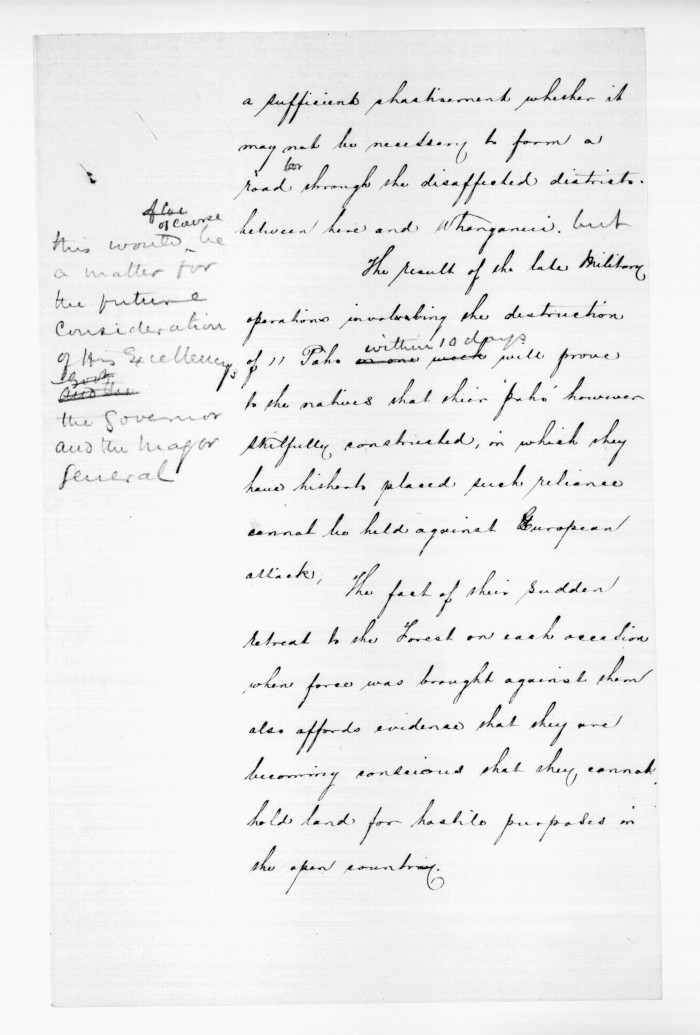 a sufficient chastisement whether it
may not be necessary to form a
road through the disaffected districts
between here and Whanganui. but
of course
this would be
a matter for
the future
consideration
of His Excellency
and the
the Governor
and the Major
General
The result of the late Military
operations involving the destruction
within 10 days
of 11 Pahs in one week will prove
to the natives that their 'pahs' however
skilfully constructed, in which they
have hitherto placed such reliance
cannot be held against European
attack,
The fact of their sudden
retreat to the Forest on each occasion
when force was brought against them
also affords evidence that they are
becoming conscious that they cannot
hold land for hostile purposes in
the open country.